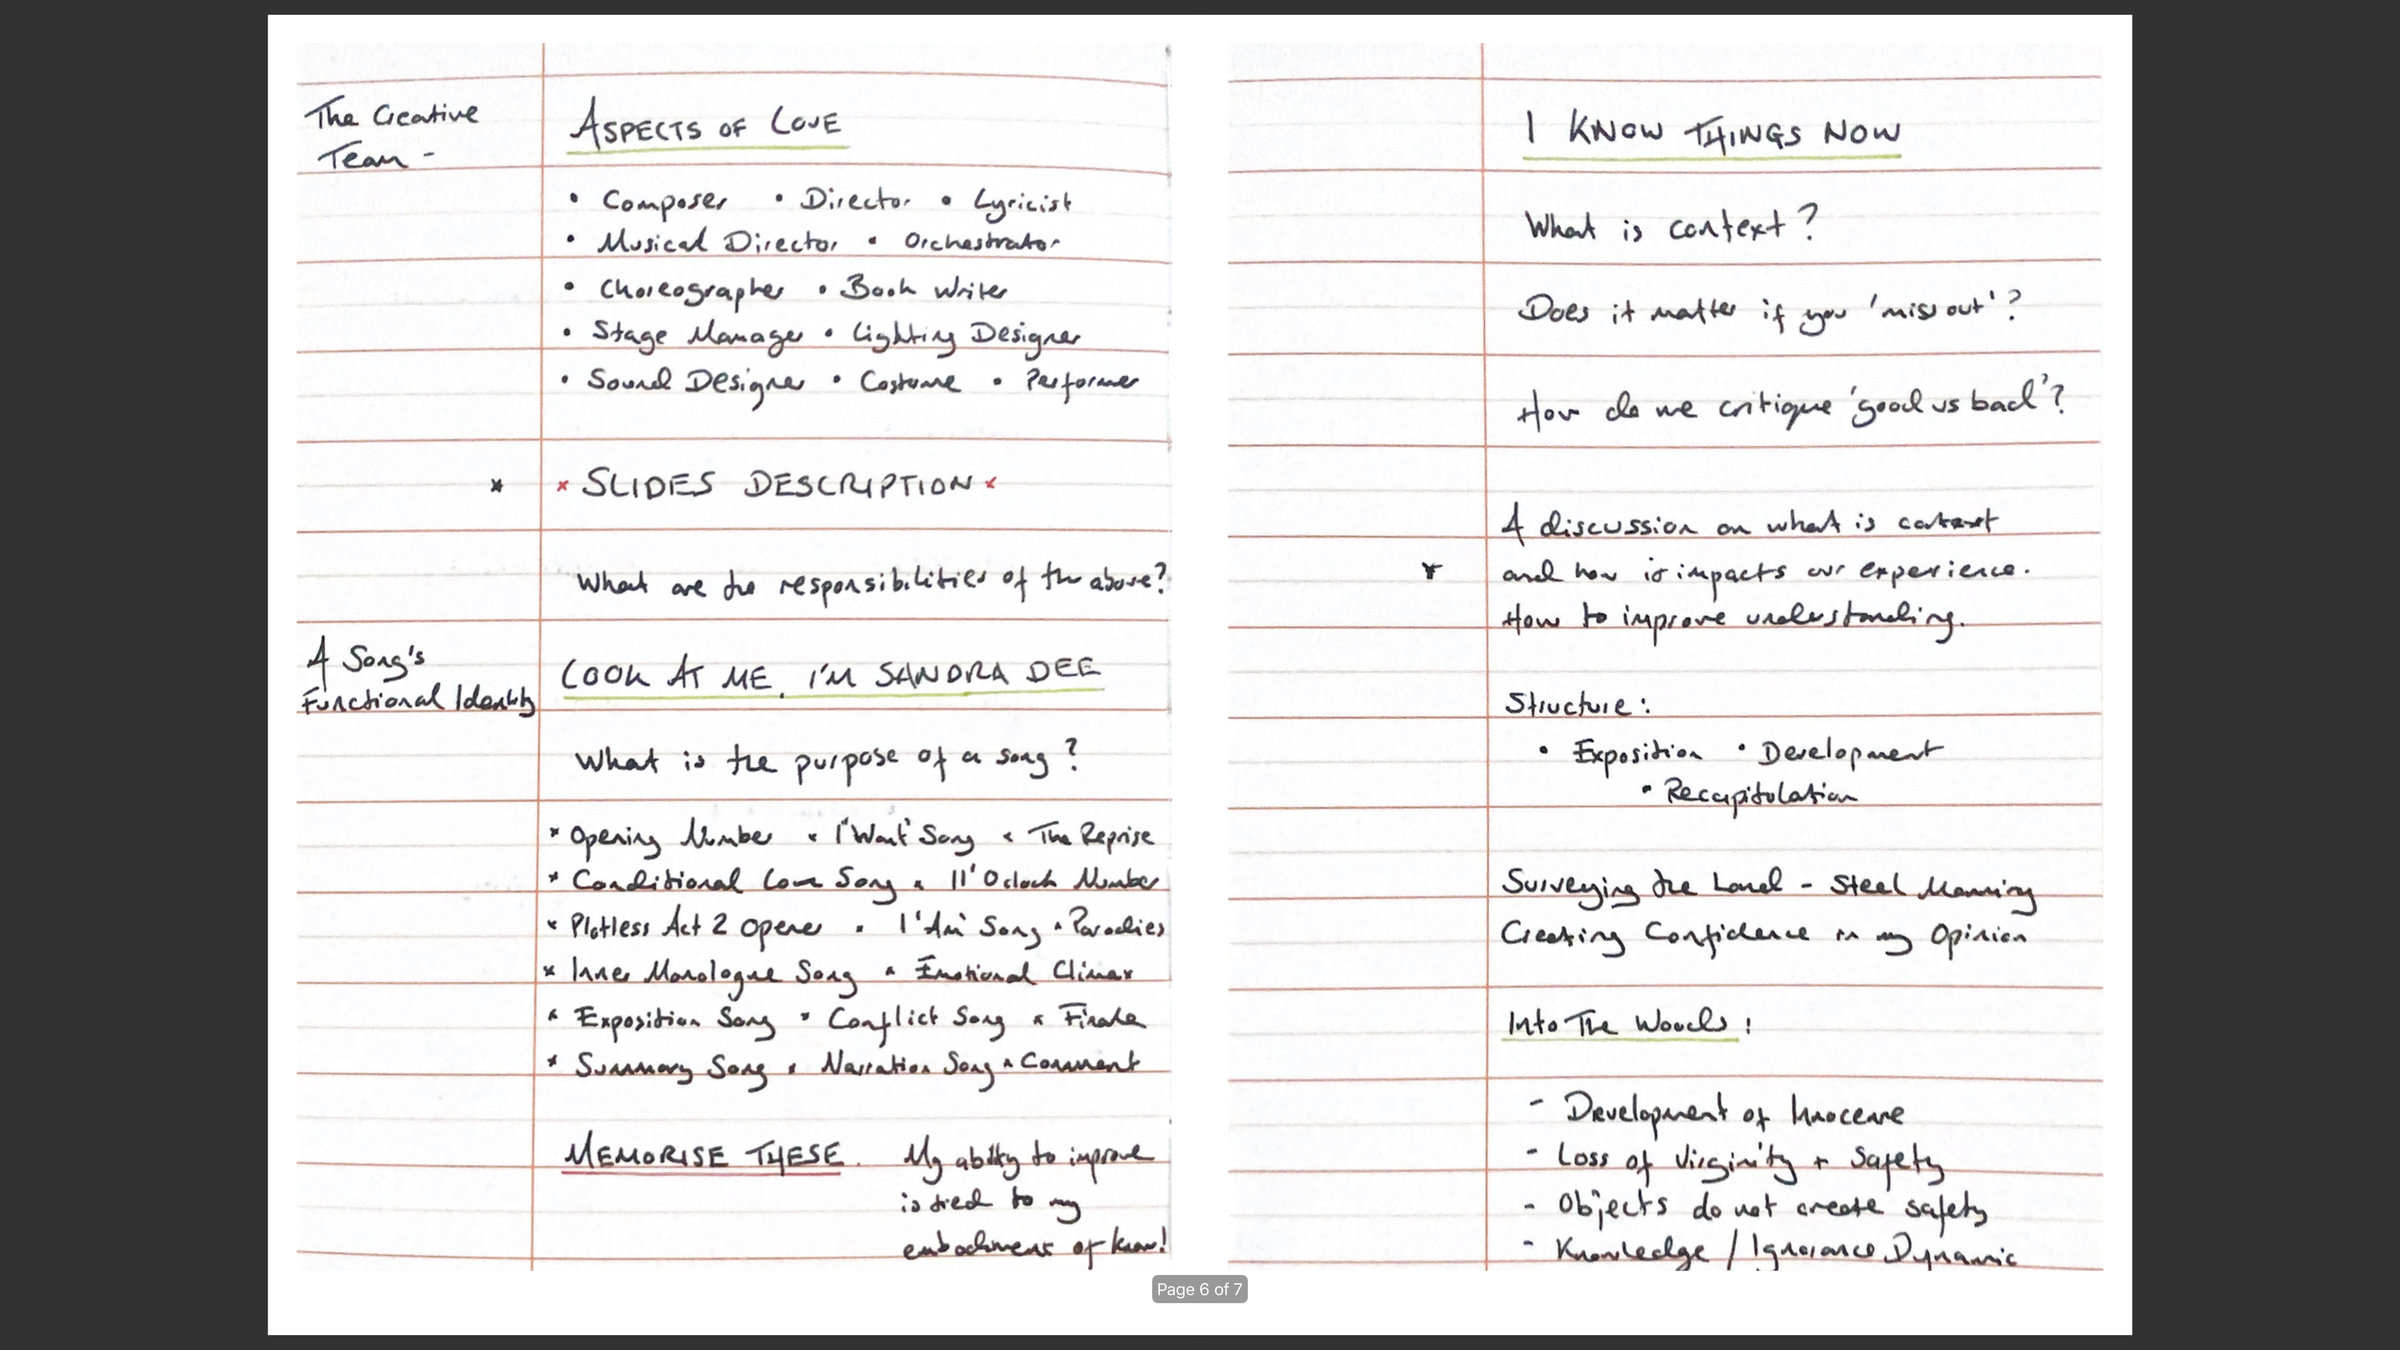 The Creative
Team -
ASPECTS OF LOVE
• Composer • Director • Lyricist
• Musical Director • Orchestrator
• Choreographer • Book Writer
• Stage Manager • Lighting Designer
• Sound Designer • Costume • Performer
* × SLIDES DESCRIPTION ×
What are the responsibilities of the above?
A Song's
Functional Identity
LOOK AT ME, I'M SANDRA DEE
What is the purpose of a song?
* Opening Number * I 'Want' Song * The Reprise
* Conditional Love Song * 11' O clock Number
* Plotless Act 2 Opener • I 'Am' Song * Parodies
* Inner Monologue Song * Emotional Climax
* Exposition Song * Conflict Song * Finale
* Summary Song * Narration Song * Comment
MEMORISE THESE. My ability to improve
is tied to my
embodiment of know!
I KNOW THINGS NOW
What is context?
Does it matter if you 'miss out'?
How do we critique 'good vs bad'?
A discussion on what is context
* and how it impacts our experience.
How to improve understanding.
Structure:
• Exposition • Development
• Recapitulation
Surveying the Land - Steel Manning
Creating Confidence in my Opinion
Into The Woods:
- Development of Innocence
- Loss of Virginity + Safety
- Objects do not create safety
- Knowledge / Ignorance Dynamic
Page 6 of 7